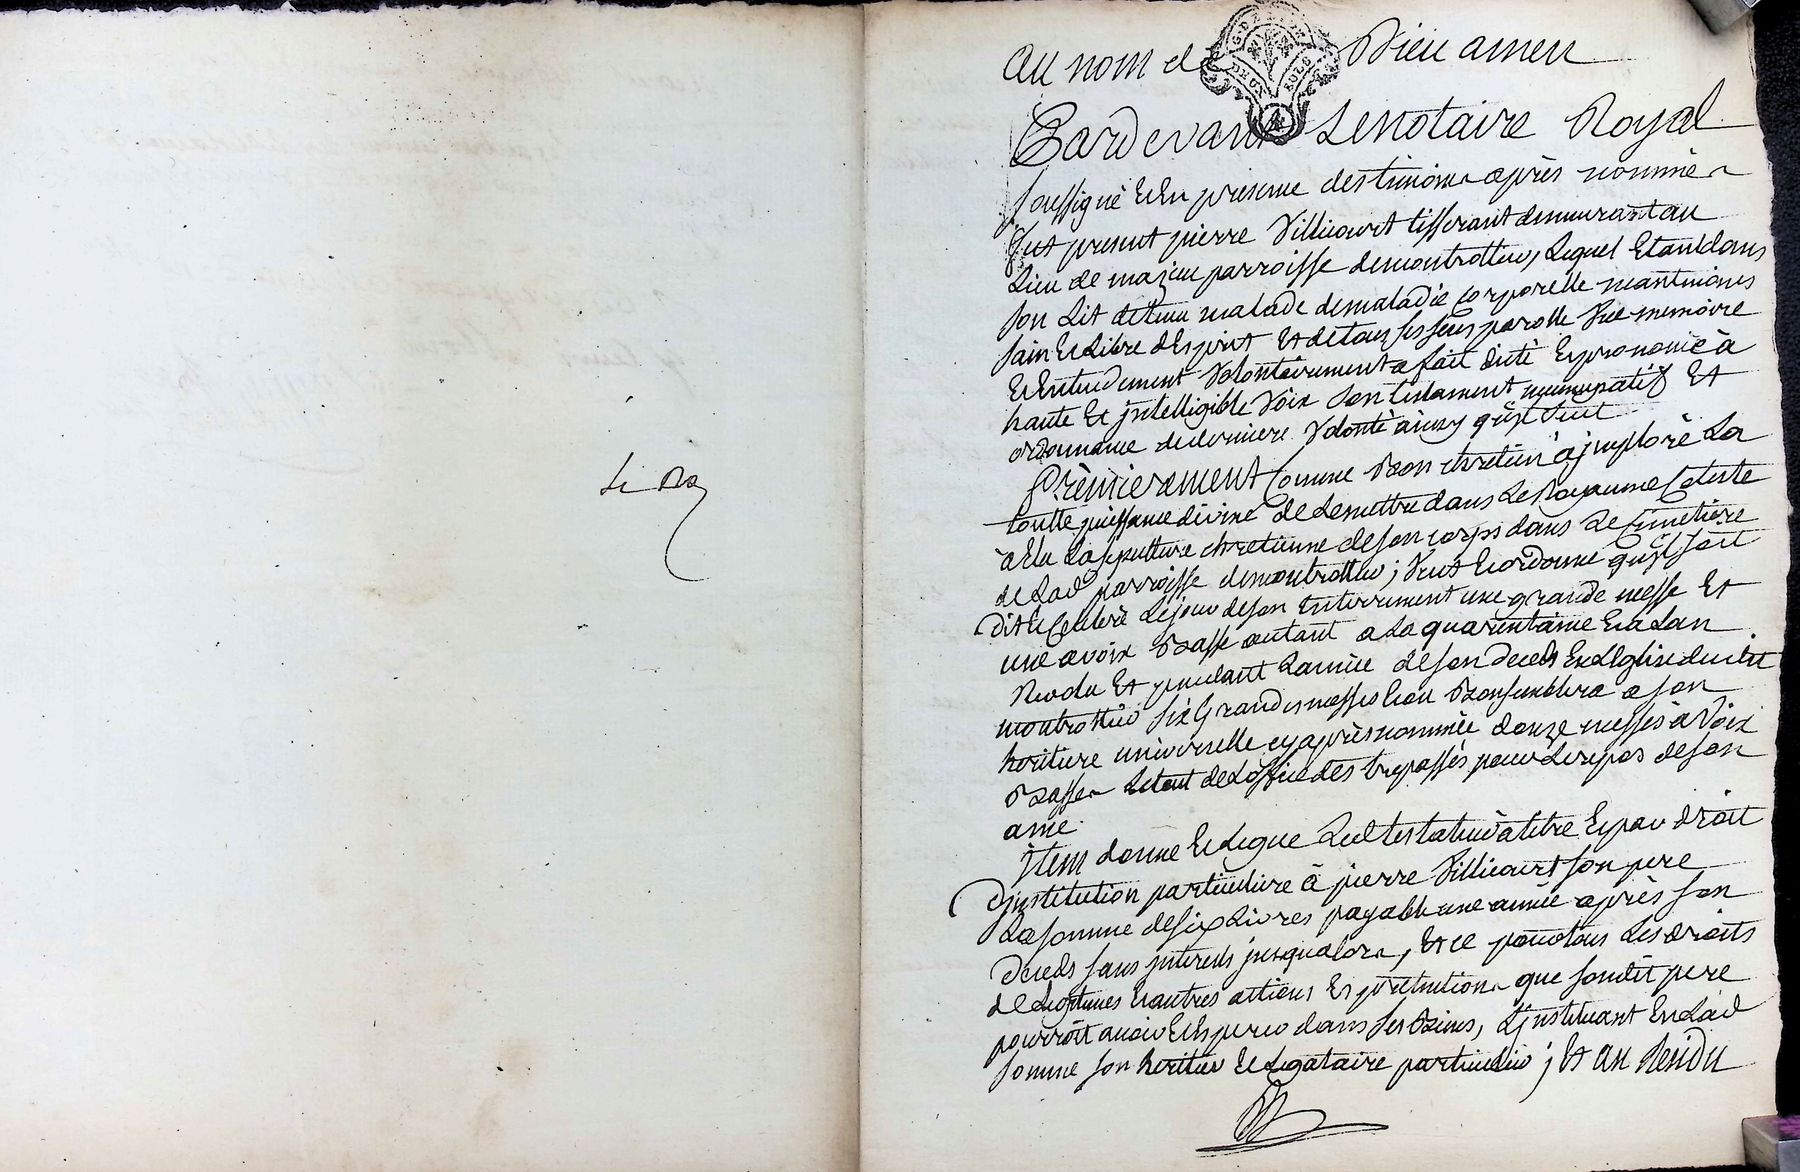 au nom de Dieu amen
G. DE LYON
DEUX SOLS
4
Pardevant Le notaire Royal
soussigné & En presence des temoins après nommés
fut present pierre Villecourt tisserant demeurant au
Lieu de parroisse demontrottier, Lequel Etant dans
son Lit detenu malade de maladie corporelle neantmoins
sain & Libre d'Esprit Et de tous ses sens parolle Vue memoire
& Entendement Volontairement a fait dicté & prononcé à
haute Et jntelligible Voix son testament nuncupatif Et
ordonnance de derniere Volonté ainsy qu'il suit
Premierement Comme Bon chretien a jmploré La
toutte puissance divine de Le mettre dans Le Royaume Celeste
a Elu La sepulture chretienne de son corps dans Le Cimetière
de Lad parroisse demontrottier; Veut & ordonne qu'il soit
dit & Celebré Le jour de son Enterrement une grande messe Et
une a voix Basse autant a La quarantaine & a Lan
Revolu Et pendant Lannée de son deceds En L'Eglise dudit
montrottier six Grandes messes Bon semblera a son
heritiere universelle cy après nommée douze messes à Voix
Basse Le tout de L'office des trepassés pour Le repos de son
ame.
jtem donne & Legue Led testateur a titre & par droit
d'jnstitution particuliere à pierre Villecourt son pere
La somme de six Livres payable une année après son
deceds sans jnterets jusqualors, Et ce pour tous Les droits
de Legitimes & autres actions & pretentions que sondit pere
pourroit avoir & Esperer dans ses Biens, L'jnstituant En Lad
somme son heritier & Legataire particulier; Et au Residu